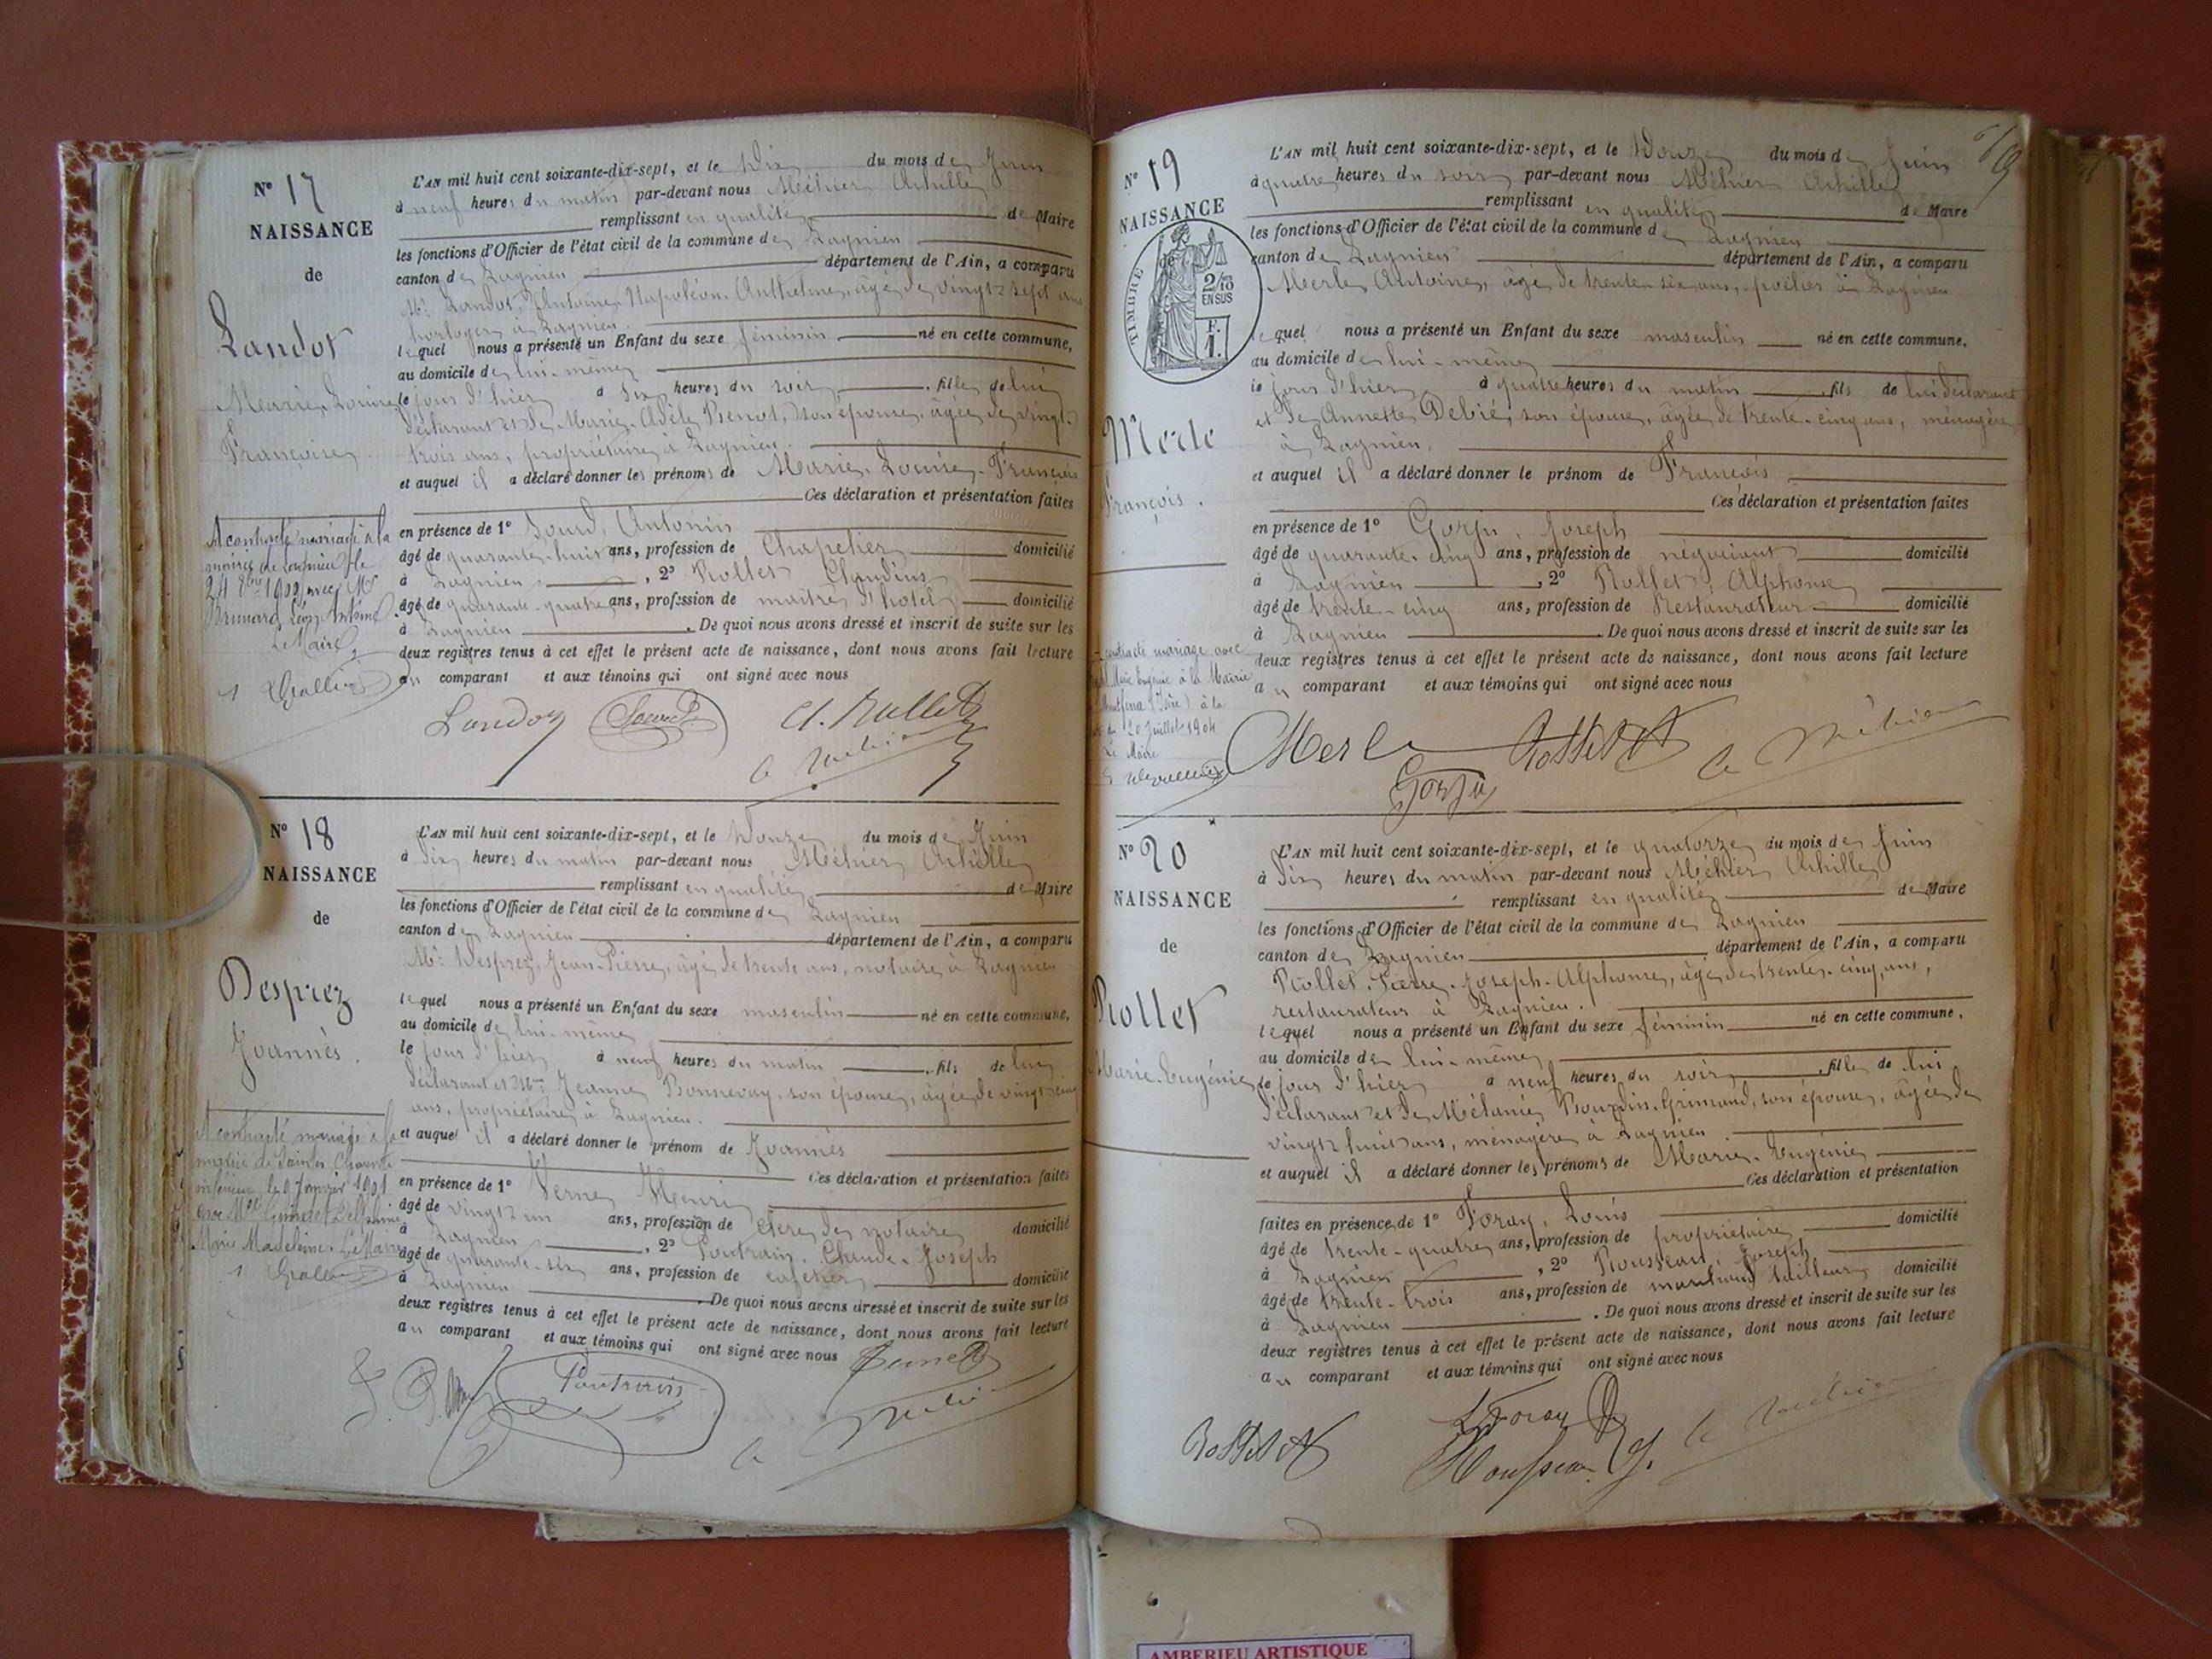 N° 17
NAISSANCE
de
Landot
Marie Louise
Françoise
A contracté mariage à la
mairie de Lagnieu le
24 8bre 1900 avec Mr
Le Maire
L'AN mil huit cent soixante-dix-sept, et le dix du mois de Juin
à neuf heures du matin par-devant nous Méhier Achille
remplissant en qualité de Maire
les fonctions d'Officier de l'état civil de la commune de Lagnieu
canton de Lagnieu département de l'Ain, a comparu
Mr Landot, Antoine Napoléon Anthelme, âgé de vingt-sept ans
horloger à Lagnieu.
lequel nous a présenté un Enfant du sexe féminin né en cette commune,
au domicile de lui-même
le jour d'hier à six heures du soir, fille de lui
déclarant et de Marie Adèle son épouse, âgée de vingt-
trois ans, propriétaire à Lagnieu.
et auquel il a déclaré donner les prénoms de Marie-Louise-Françoise
Ces déclaration et présentation faites
en présence de 1° Sourd, Antonin
âgé de quarante-huit ans, profession de Chapelier domicilié
à Lagnieu, 2° Rollet Claudius
âgé de quarante-quatre ans, profession de maître d'hôtel domicilié
à Lagnieu. De quoi nous avons dressé et inscrit de suite sur les
deux registres tenus à cet effet le présent acte de naissance, dont nous avons fait lecture
au comparant et aux témoins qui ont signé avec nous
Landot Sourd Cl. Rollet
A Méhier
N° 18
NAISSANCE
de
Desprez
Joannès.
A contracté mariage à la
mairie de Saintes Charente
inférieure le 1901
Marie Madeleine. Le Maire
L'AN mil huit cent soixante-dix-sept, et le douze du mois de Juin
à dix heures du matin par-devant nous Méhier Achille
remplissant en qualité de Maire
les fonctions d'Officier de l'état civil de la commune de Lagnieu
canton de Lagnieu département de l'Ain, a comparu
Mr Desprez, Jean-Pierre, âgé de trente ans, notaire à Lagnieu
lequel nous a présenté un Enfant du sexe masculin né en cette commune,
au domicile de lui-même
le jour d'hier à neuf heures du matin, fils de lui
déclarant et de Jeanne Bonnevay, son épouse, âgée de vingt-cinq
ans, propriétaire à Lagnieu.
et auquel il a déclaré donner le prénom de Joannès
Ces déclaration et présentation faites
en présence de 1° Verne Henri
âgé de vingt-un ans, profession de clerc de notaire domicilié
à Lagnieu, 2° Poutrain, Claude-Joseph
âgé de quarante-six ans, profession de cafetier domicilié
à Lagnieu. De quoi nous avons dressé et inscrit de suite sur les
deux registres tenus à cet effet le présent acte de naissance, dont nous avons fait lecture
au comparant et aux témoins qui ont signé avec nous
A Méhier
N° 19
NAISSANCE
de
TIMBRE
2/10
EN SUS
F.
1.
Merle
François.
contracté mariage avec
Marie Eugénie à la Mairie
(Isère) à la
20 Juillet 1904
Le Maire
L'AN mil huit cent soixante-dix-sept, et le douze du mois de Juin
à quatre heures du soir par-devant nous Méhier Achille
remplissant en qualité de Maire
les fonctions d'Officier de l'état civil de la commune de Lagnieu
canton de Lagnieu département de l'Ain, a comparu
Merle Antoine, âgé de trente-six ans, potier à Lagnieu
lequel nous a présenté un Enfant du sexe masculin né en cette commune,
au domicile de lui-même
le jour d'hier à quatre heures du matin, fils de lui déclarant
et de Annette Debié, son épouse, âgée de trente-cinq ans, ménagère
à Lagnieu,
et auquel il a déclaré donner le prénom de François
Ces déclaration et présentation faites
en présence de 1° Gorju, Joseph
âgé de quarante-cinq ans, profession de négociant domicilié
à Lagnieu, 2° Rollet, Alphonse
âgé de trente-cinq ans, profession de Restaurateur domicilié
à Lagnieu. De quoi nous avons dressé et inscrit de suite sur les
deux registres tenus à cet effet le présent acte de naissance, dont nous avons fait lecture
au comparant et aux témoins qui ont signé avec nous
Merle Rollet A A Méhier
Gorju
N° 20
NAISSANCE
de
Rollet
Marie-Eugénie
L'AN mil huit cent soixante-dix-sept, et le quatorze du mois de Juin
à dix heures du matin par-devant nous Méhier Achille
remplissant en qualité de Maire
les fonctions d'Officier de l'état civil de la commune de Lagnieu
canton de Lagnieu département de l'Ain, a comparu
Rollet, Pierre-Joseph-Alphonse, âgé de trente-cinq ans,
restaurateur à Lagnieu.
lequel nous a présenté un Enfant du sexe féminin né en cette commune,
au domicile de lui-même
le jour d'hier à neuf heures du soir, fille de lui
déclarant et de Mélanie Bourdin-Grimaud, son épouse, âgée de
vingt-huit ans, ménagère à Lagnieu.
et auquel il a déclaré donner les prénoms de Marie-Eugénie
Ces déclaration et présentation
faites en présence de 1° Foray, Louis
âgé de trente-quatre ans, profession de propriétaire domicilié
à Lagnieu, 2° Rousseau, Joseph
âgé de trente-trois ans, profession de marchand tailleur domicilié
à Lagnieu. De quoi nous avons dressé et inscrit de suite sur les
deux registres tenus à cet effet le présent acte de naissance, dont nous avons fait lecture
au comparant et aux témoins qui ont signé avec nous
Rollet A L Foray A Méhier
Rousseau J.
AMBERIEU ARTISTIQUE